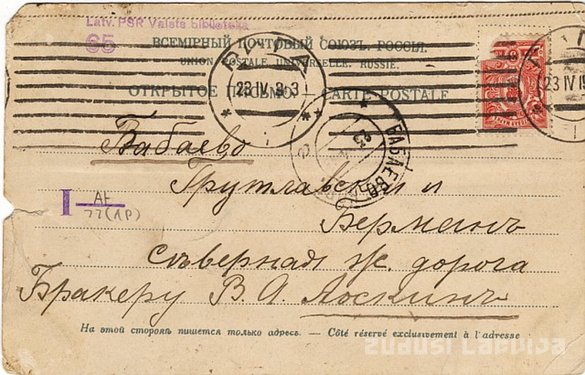 Latv. PSR Valsts bibliotēka
65
ВСЕМІРНЫЙ ПОЧТОВЫЙ СОЮЗЪ. РОССІЯ.
UNION POSTALE UNIVERSELLE. RUSSIE.
ОТКРЫТОЕ ПИСЬМО — CARTE POSTALE
23 IV
БАБАЕВО
23 IV
Бабаево
и
Берманъ
I
Съверная ж. дорога
Бракеру В. А. Лоскинъ
На этой сторонѣ пишется только адресъ. — Côté réservé exclusivement à l'adresse
zudusi Latvija